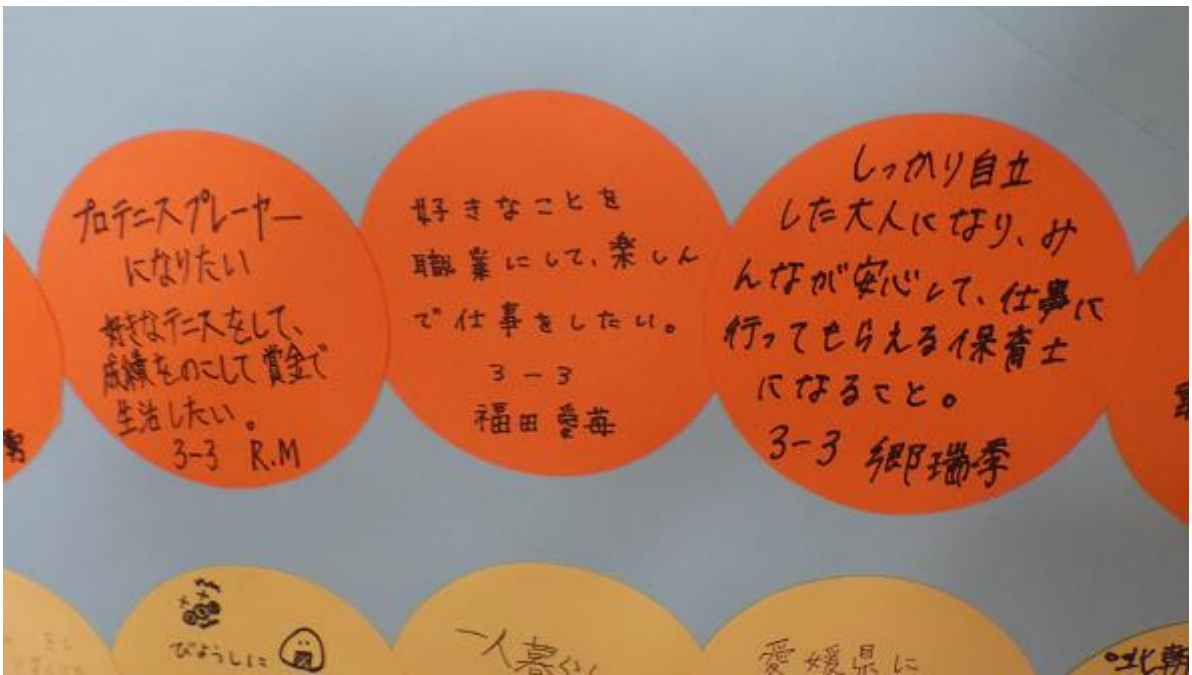 プロテニスプレーヤー
になりたい
好きなテニスをして、
成績をのこして賞金で
生活したい。
3-3 R.M
好きなことを
職業にして、楽しん
で仕事をしたい。
3-3
福田愛苺
しっかり自立
した大人になり、み
んなが安心して、仕事に
行ってもらえる保育士
になること。
3-3 郷瑞季
びようしに
一人暮らし
愛媛県に
北朝